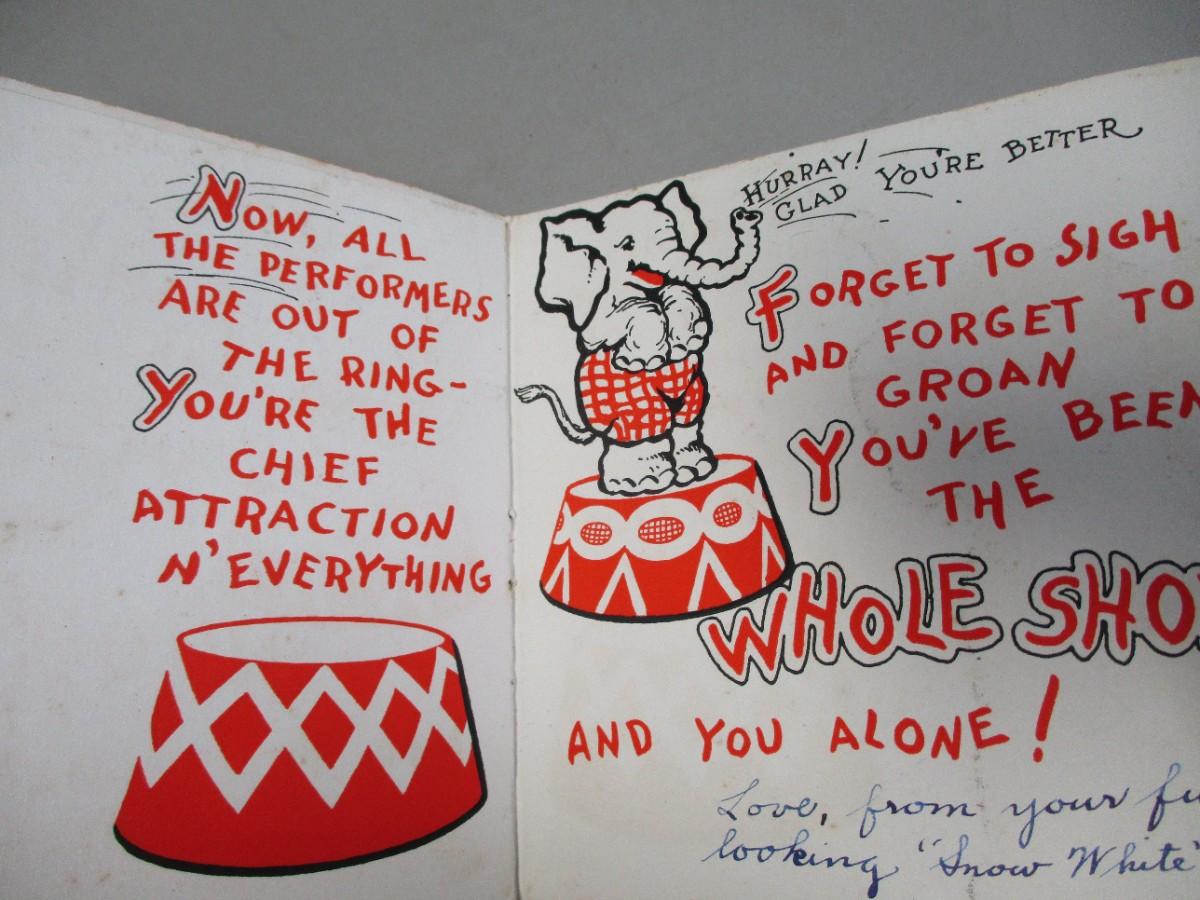 NOW, ALL
THE PERFORMERS
ARE OUT OF
THE RING-
YOU'RE THE
CHIEF
ATTRACTION
N' EVERYTHING
HURRAY!
GLAD YOU'RE BETTER
FORGET TO SIGH
AND FORGET TO
GROAN
YOU'VE BEEN
THE
WHOLE SHO
AND YOU ALONE!
Love, from your fu
looking "Snow White"